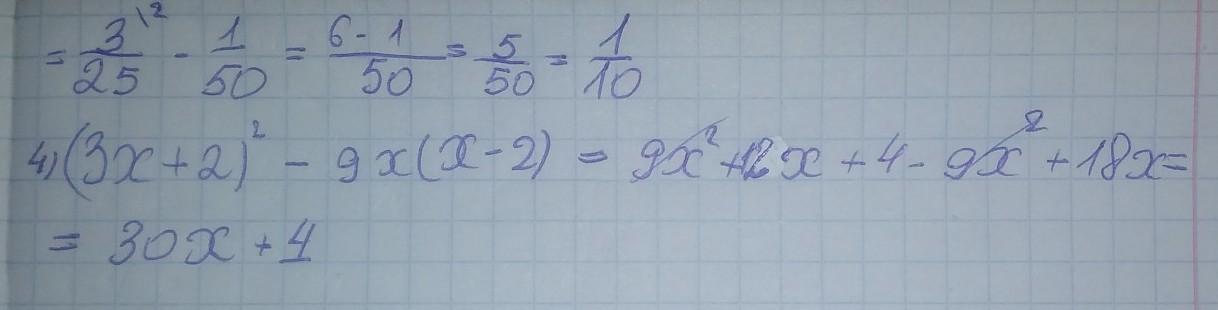 = 3\2/25 - 1/50 = 6-1/50 = 5/50 = 1/10
4) (3x+2)² - 9x(x-2) = 9x² + 12x + 4 - 9x² + 18x =
= 30x + 4